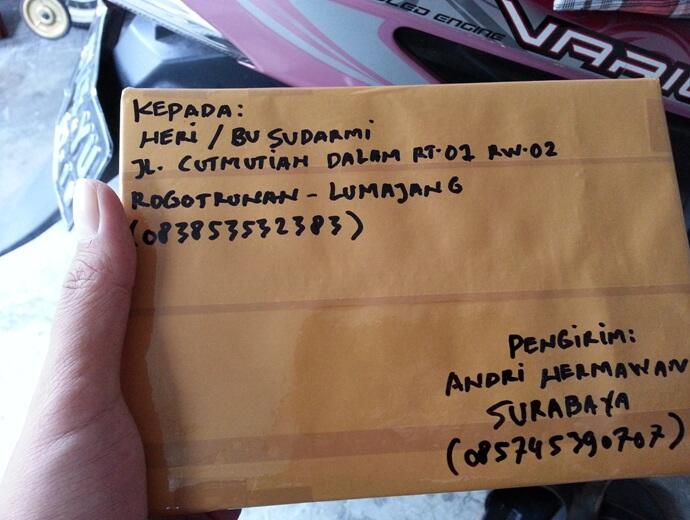 LED ENGINE
VARIO
KEPADA:
HERI / BU SUDARMI
JL. CUTMUTIAH DALAM RT.01 RW.02
ROGOTRUNAN - LUMAJANG
(083853532383)
PENGIRIM:
ANDRI HERMAWAN
SURABAYA
(085745390707)